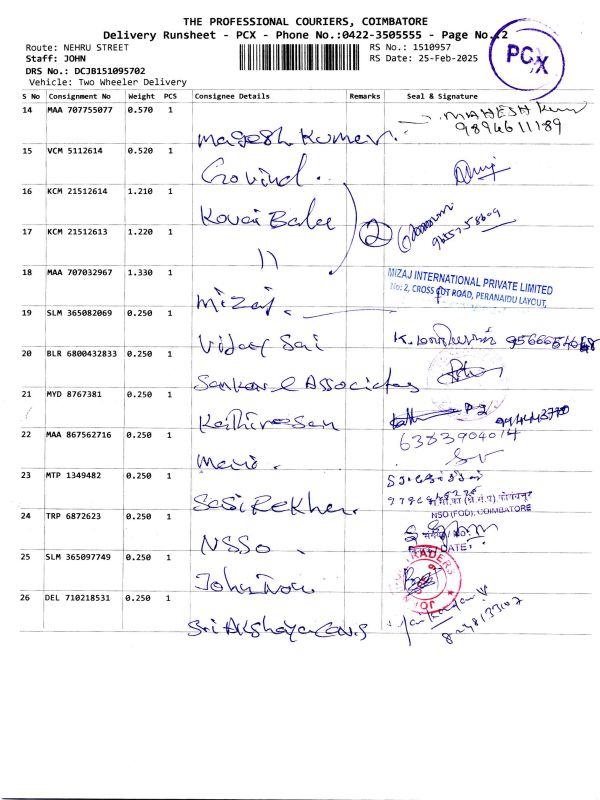 THE PROFESSIONAL COURIERS, COIMBATORE
Delivery Runsheet - PCX - Phone No.:0422-3505555 - Page No.:2
PCX
Route: NEHRU STREET
RS No.: 1510957
Staff: JOHN
RS Date: 25-Feb-2025
DRS No.: DCJB151095702
Vehicle: Two Wheeler Delivery
S No Consignment No Weight PCS Consignee Details Remarks Seal & Signature
14 MAA 707755077 0.570 1 Magesh Kumar. MAHESH Kum
9894611189
15 VCM 5112614 0.520 1 Govind.
16 KCM 21512614 1.210 1 Kovai Bala 2
17 KCM 21512613 1.220 1 11
18 MAA 707032967 1.330 1 Mizaj.
MIZAJ INTERNATIONAL PRIVATE LIMITED
No: 2, CROSS CUT ROAD, PERANAIDU LAYOUT,
19 SLM 365082069 0.250 1 Vijay Sai
20 BLR 6800432833 0.250 1 Sankar & Associates
21 MYD 8767381 0.250 1 Kathiresan
22 MAA 867562716 0.250 1 Mario.
6383904014
23 MTP 1349482 0.250 1 SasiRekha.
24 TRP 6872623 0.250 1 NSSO.
NSO (FOD), COIMBATORE
DATE:
25 SLM 365097749 0.250 1
TRADERS
26 DEL 710218531 0.250 1 Sri Akshaya